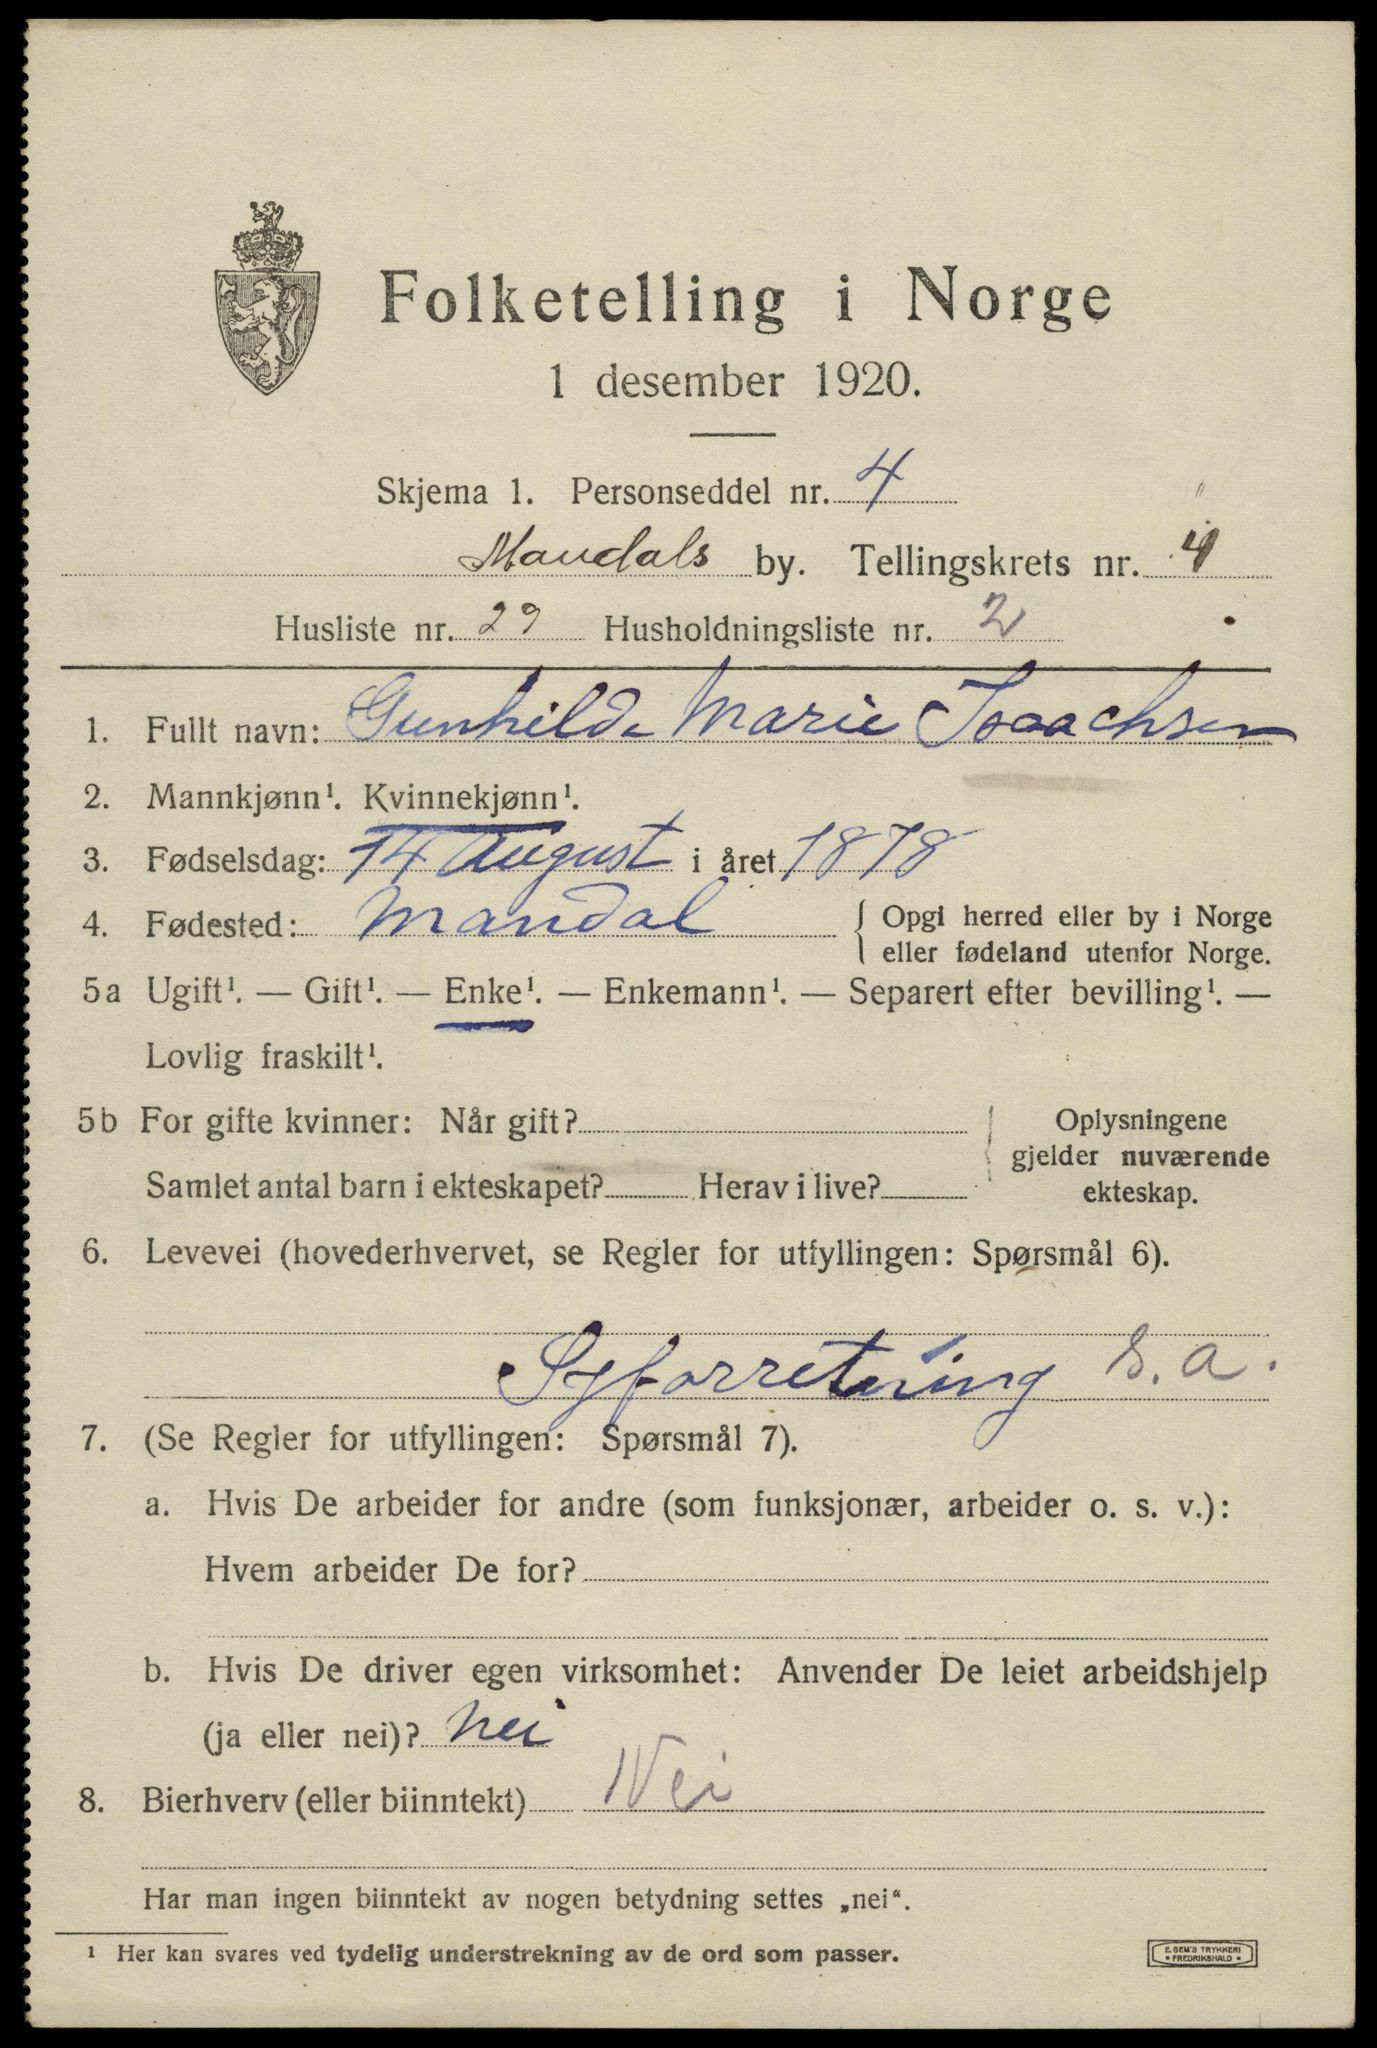 Folketelling i Norge
1 desember 1920.
Skjema 1. Personseddel nr. 4
Mandals by. Tellingskrets nr. 4
Husliste nr. 29 Husholdningsliste nr. 2
1. Fullt navn: Gunhilde Marie Isaachsen
2. Mannkjønn¹. Kvinnekjønn¹.
3. Fødselsdag: 14 August i året 1878
4. Fødested: Mandal { Opgi herred eller by i Norge
eller fødeland utenfor Norge.
5a Ugift¹. — Gift¹. — Enke¹. — Enkemann¹. — Separert efter bevilling¹. —
Lovlig fraskilt¹.
5b For gifte kvinner: Når gift? Oplysningene
gjelder nuværende
Samlet antal barn i ekteskapet? Herav i live? ekteskap.
6. Levevei (hovederhvervet, se Regler for utfyllingen: Spørsmål 6).
Syforretning s. a.
7. (Se Regler for utfyllingen: Spørsmål 7).
a. Hvis De arbeider for andre (som funksjonær, arbeider o. s. v.):
Hvem arbeider De for?
b. Hvis De driver egen virksomhet: Anvender De leiet arbeidshjelp
(ja eller nei)? nei
8. Bierhverv (eller biinntekt) Nei
Har man ingen biinntekt av nogen betydning settes „nei“.
¹ Her kan svares ved tydelig understrekning av de ord som passer.
E. SEM'S TRYKKERI
• FREDRIKSHALD •